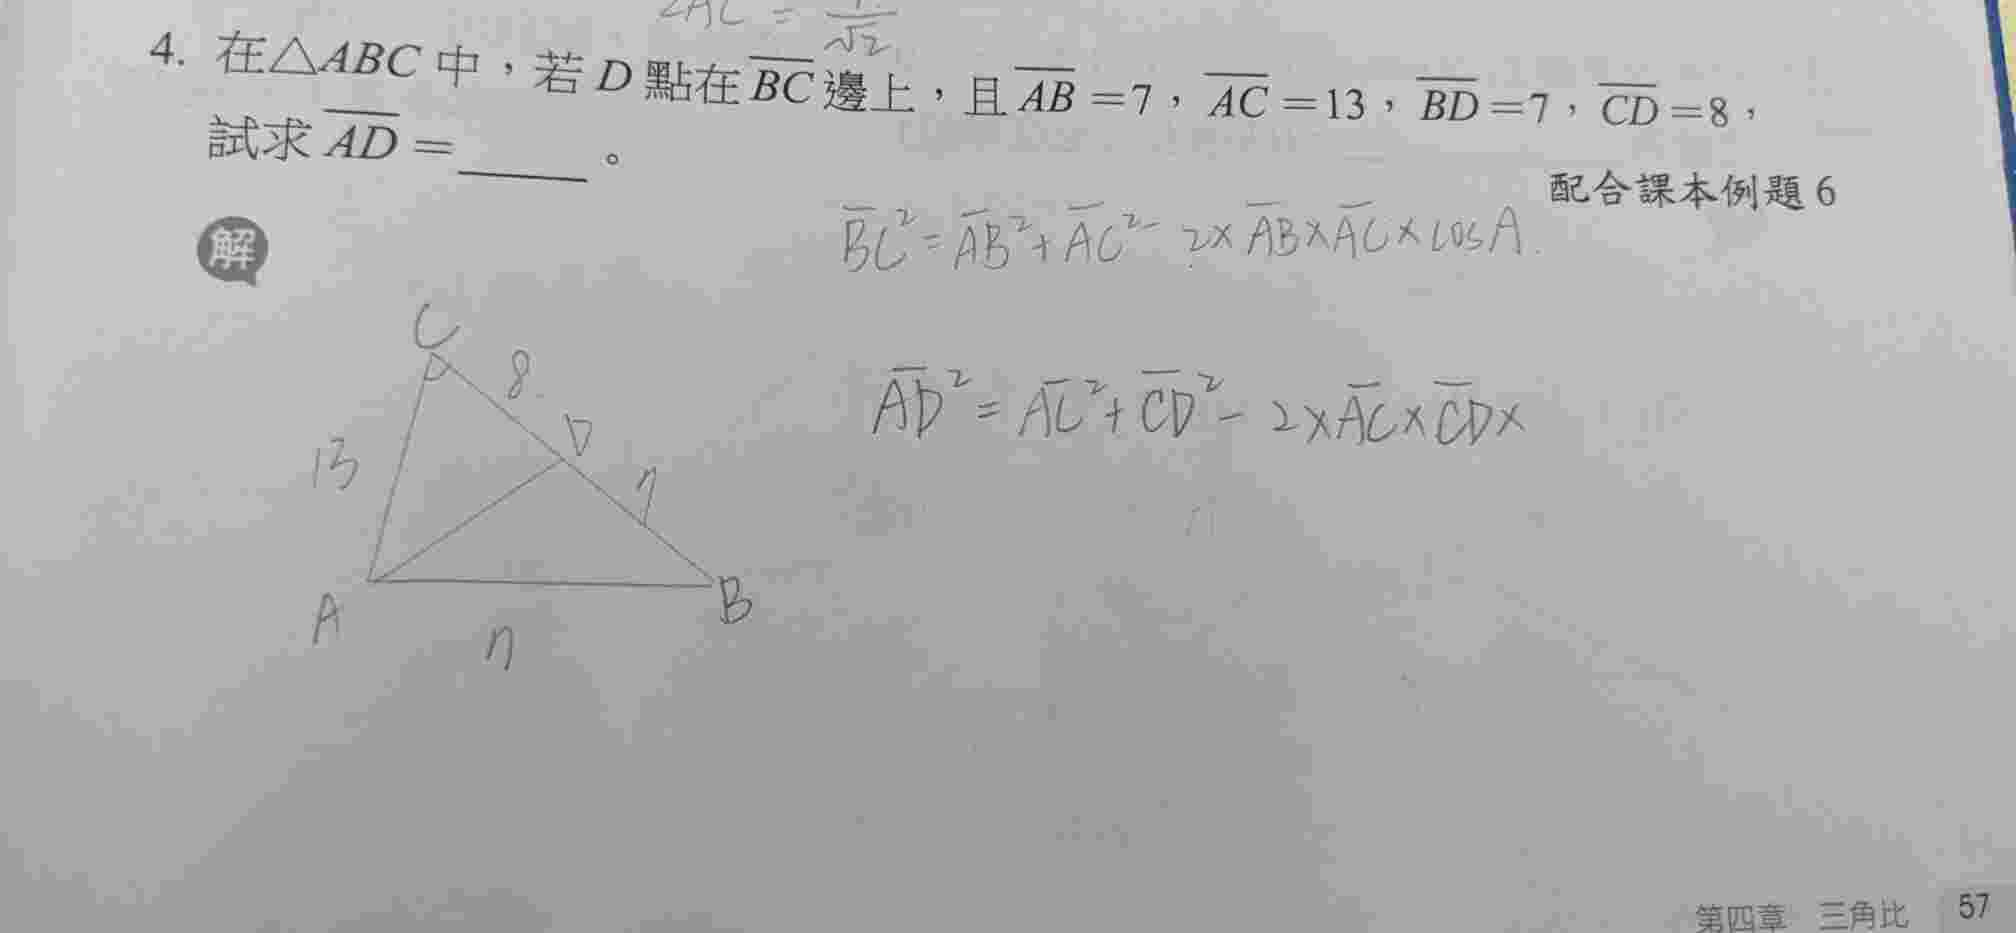 4. 在△ABC 中，若 D 點在 BC 邊上，且 AB=7，AC=13，BD=7，CD=8，
試求 AD=____。
配合課本例題 6
解
BC²=AB²+AC²-2×AB×AC×cosA.
C
8
AD²=AC²+CD²-2×AC×CD×
D
13
7
A
B
7
第四章 三角比 57